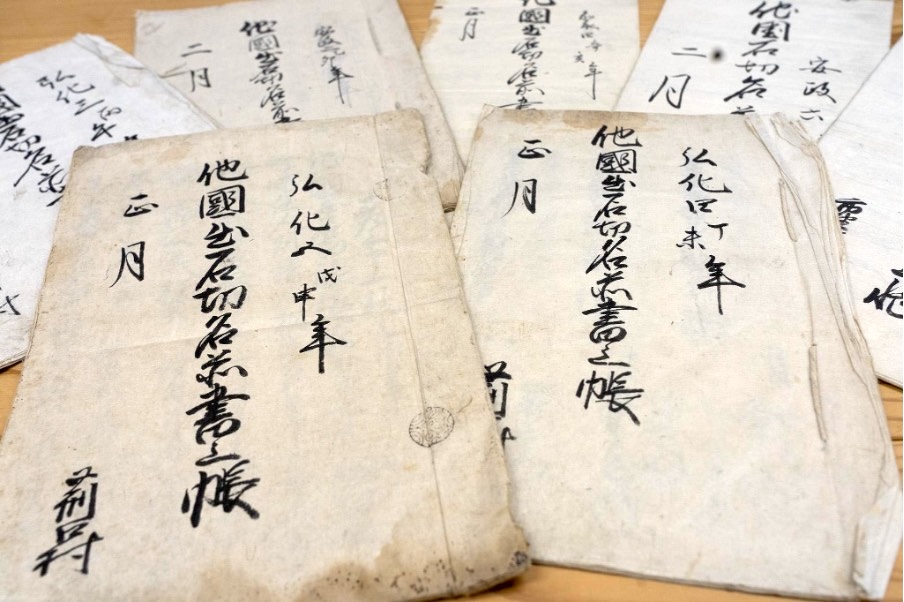 弘化五戊申年
他國出石切名前書上帳
正月
荊口村
弘化四丁未年
他國出石切名前書上帳
正月
弘化三丙午年
國出石切名前
年
他國出石切名前
二月
年
他國出石切名前書
正月
安政六
他国石切名
二月
他